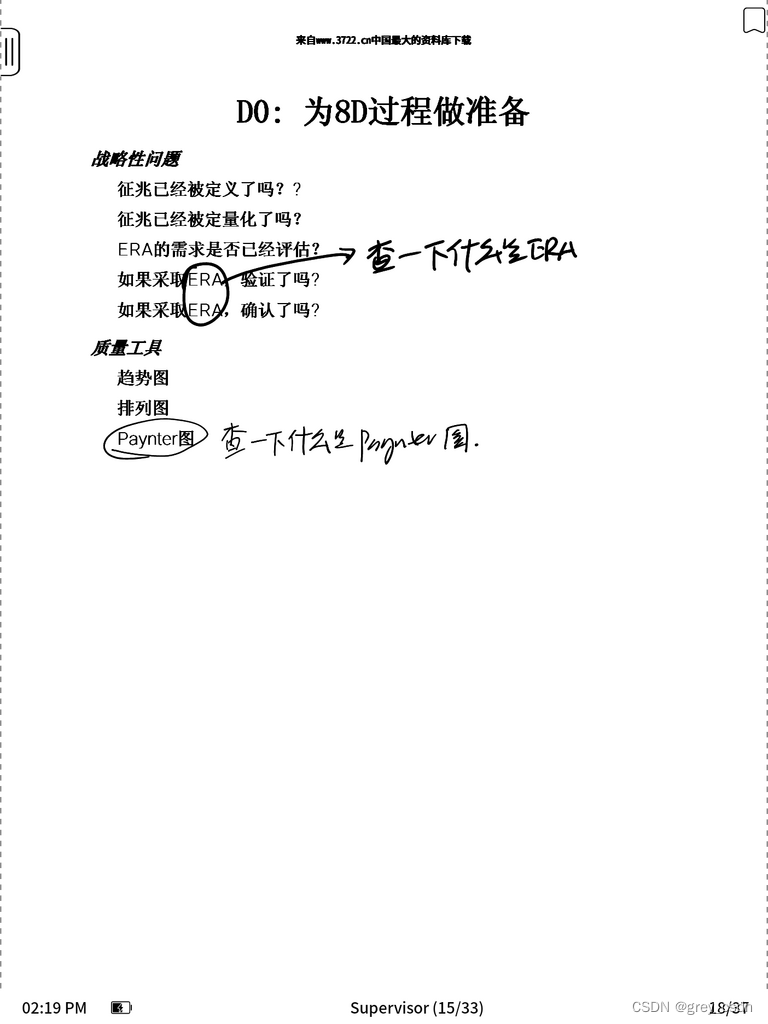 来自www.3722.cn中国最大的资料库下载
D0: 为8D过程做准备
战略性问题
征兆已经被定义了吗？？
征兆已经被定量化了吗？
ERA的需求是否已经评估？
查一下什么是ERA
如果采取ERA，验证了吗？
如果采取ERA，确认了吗？
质量工具
趋势图
排列图
Paynter图 查一下什么是Paynter图.
02:19 PM Supervisor (15/33) 18/37
CSDN @grey_csdn